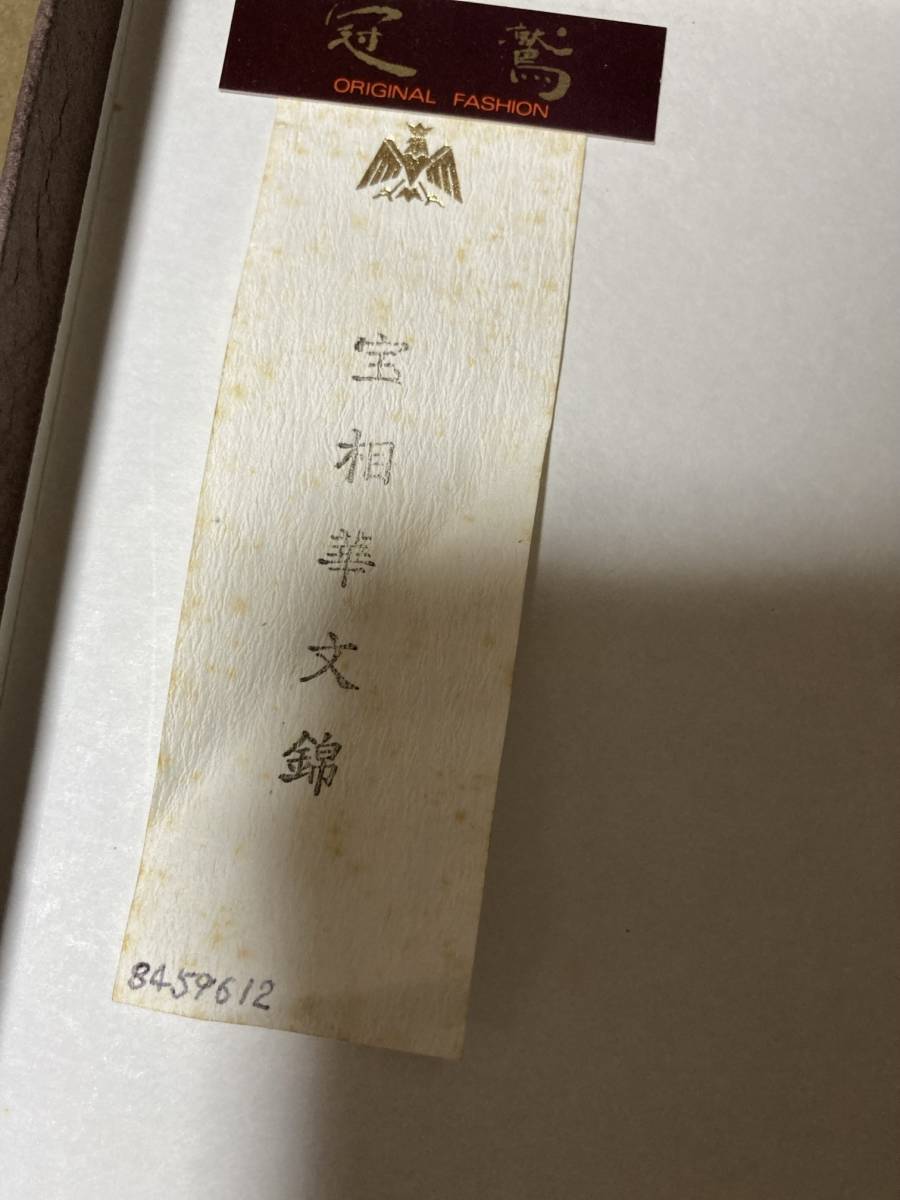 冠鷲
ORIGINAL FASHION
宝相華文錦
8459612